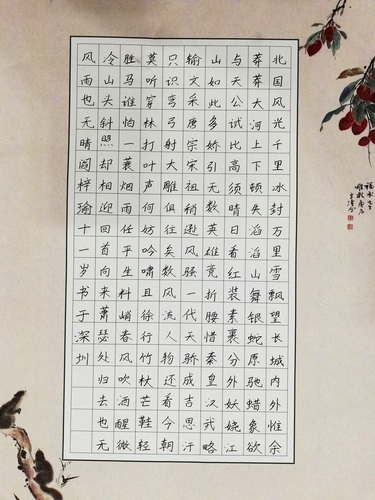 北国风光千里冰封万里雪飘望长城内外惟余
莽莽大河上下顿失滔滔山舞银蛇原驰蜡象欲
与天公试比高须晴日看红装素裹分外妖娆江
山如此多娇引无数英雄竞折腰惜秦皇汉武略
输文采唐宗宋祖稍逊风骚一代天骄成吉思汗
只识弯弓射大雕俱往矣数风流人物还看今朝
莫听穿林打叶声何妨吟啸且徐行竹杖芒鞋轻
胜马谁怕一蓑烟雨任平生料峭春风吹酒醒微
冷山头斜照却相迎回首向来萧瑟处归去也无
风雨也无晴阎梓瑜十一岁书于深圳